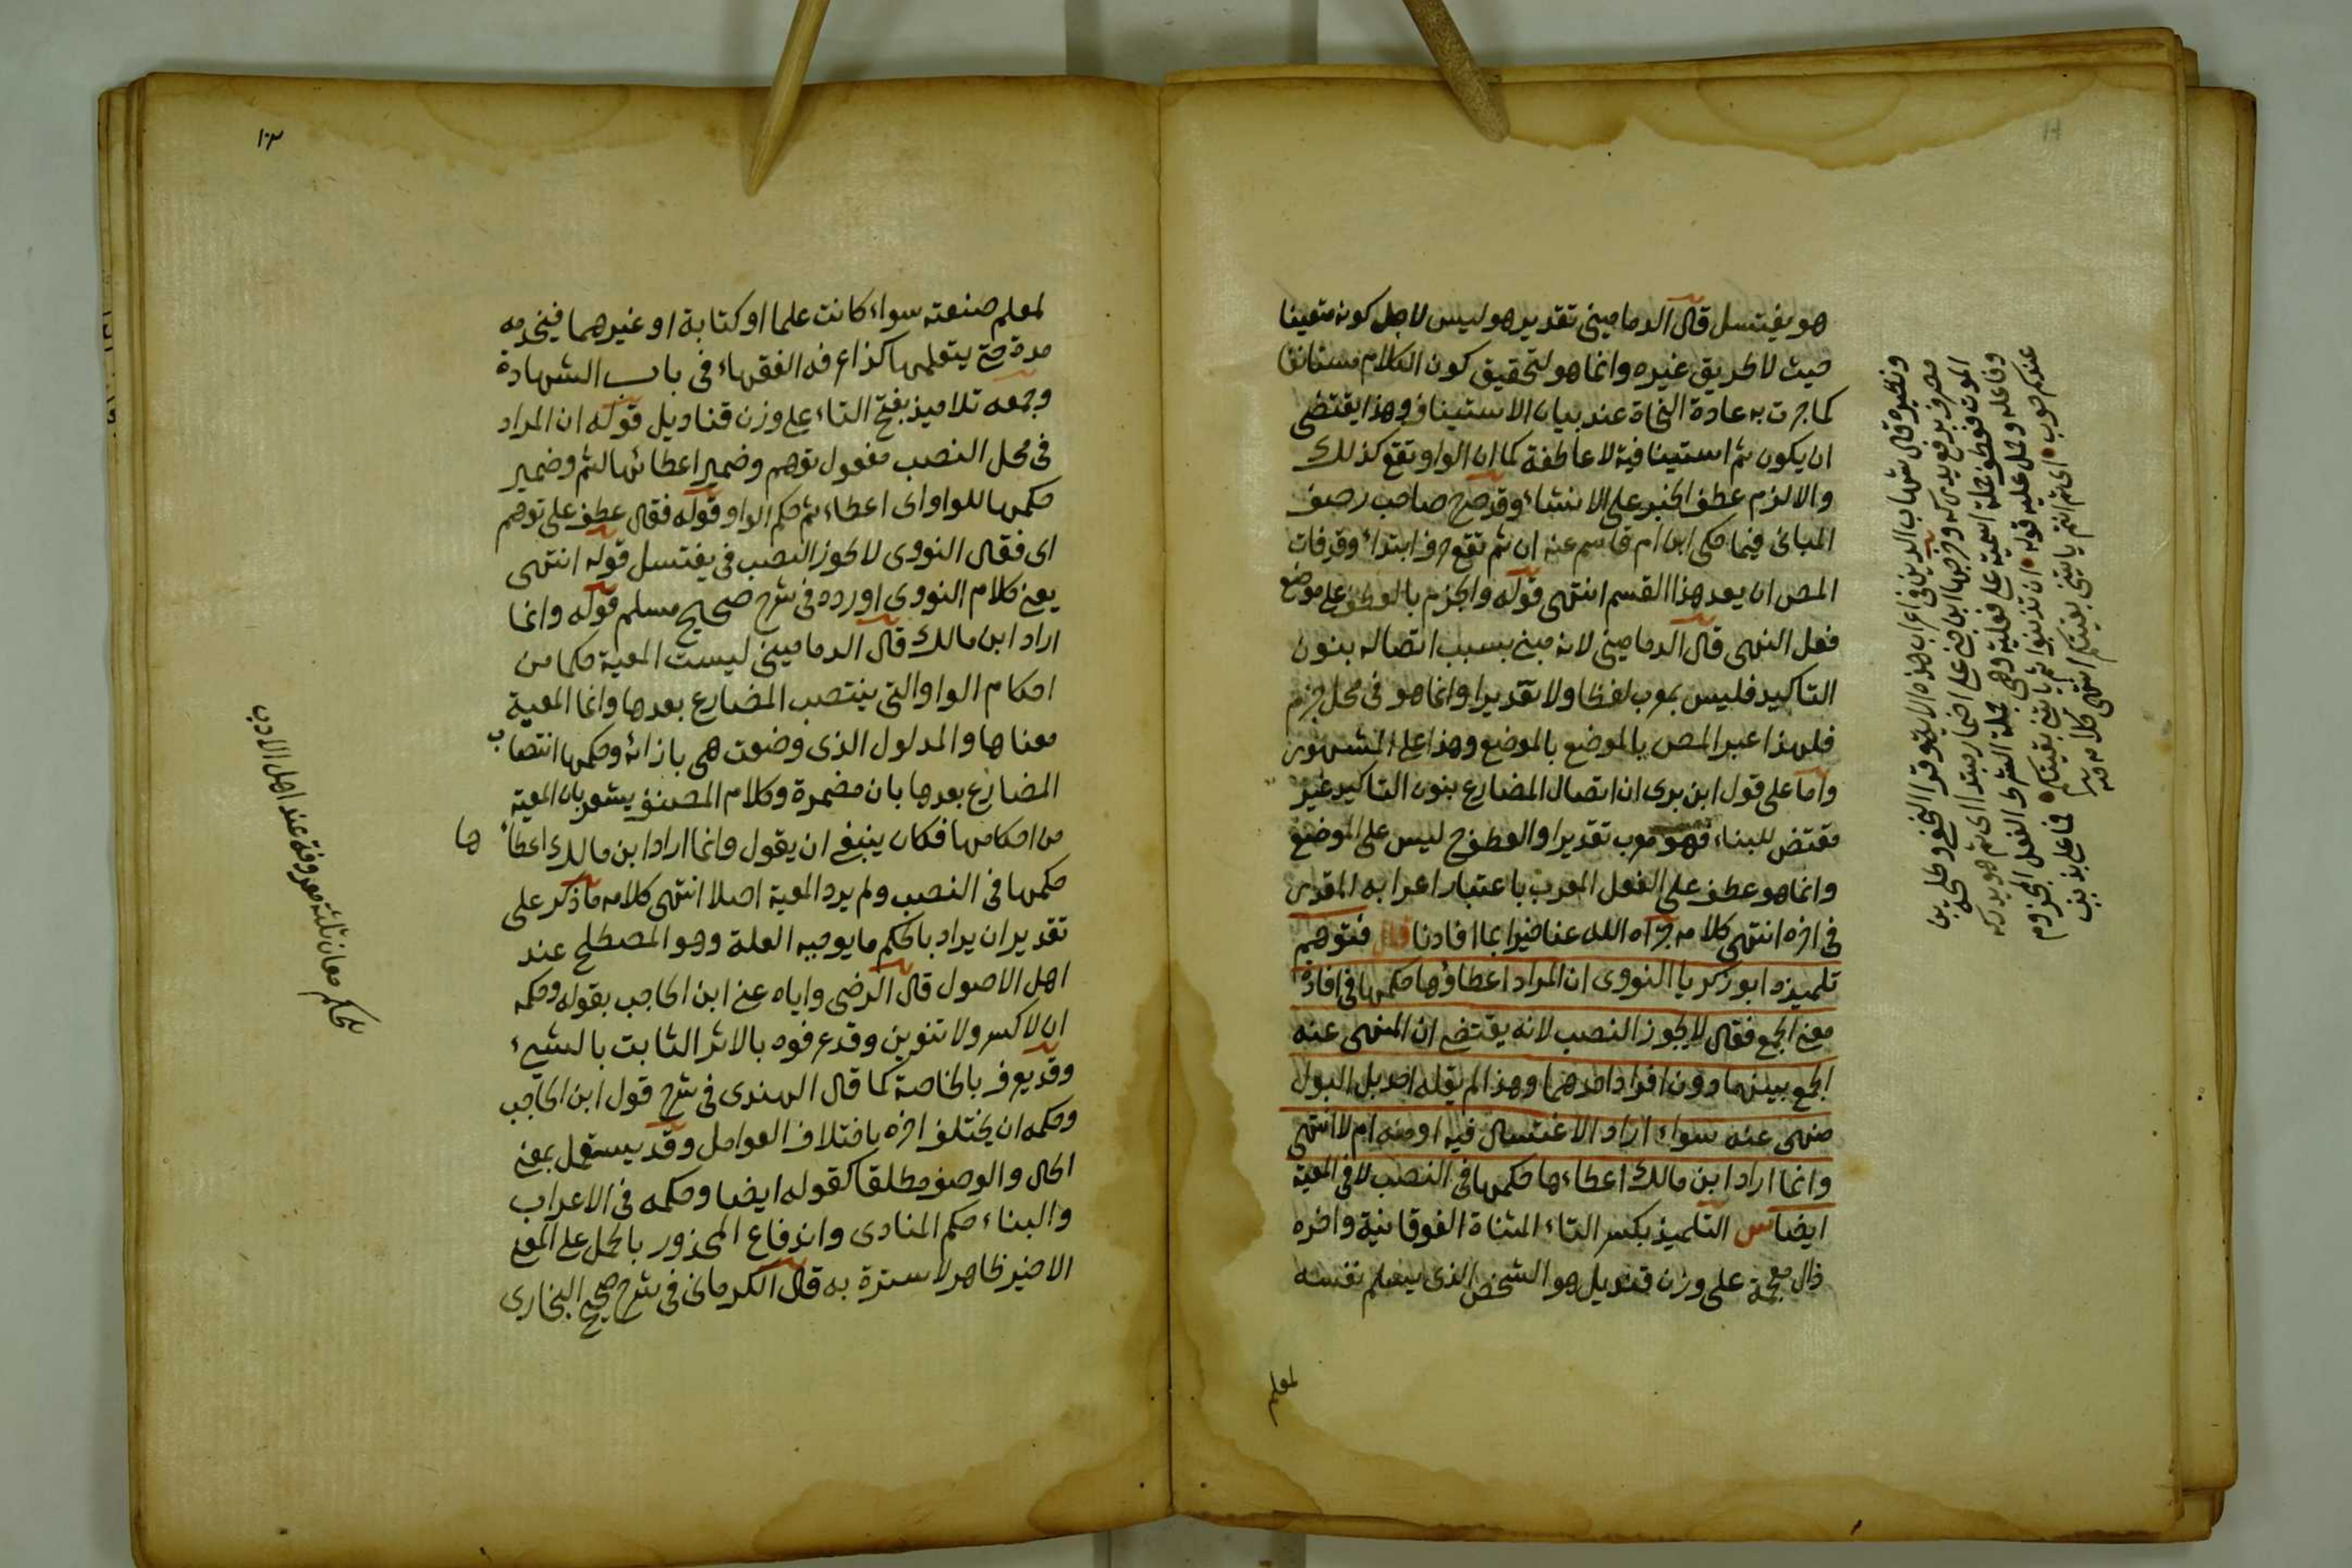 هو يغتسل قال الدماميني تقدير هو ليس لاجل كونه متعينا
حيث لا طريق غيره وانما هو لتحقيق كون الكلام مستانفا
كما جرت به عادة النحاة عند بيان الاستيناف وهذا يقتضى
ان يكون ثم استينافية لا عاطفة كما ان الواو تقع كذلك
والا لزم عطف الخبر على الانشاء وقد صرح صاحب رصف
المبانى فيما حكى ابن ام قاسم عنه ان ثم تقع حرف ابتداء وقد فات
المص ان يعد هذا القسم انتهى قوله والجزم بالعطف على موضع
فعل النهى قال الدمامينى لانه مبنى بسبب اتصاله بنون
التاكيد فليس بمعرب لفظا ولا تقديرا وانما هو فى محل جزم
فلهذا عبر المص بالموضع وهذا على المشهور
واما على قول ابن برى ان اتصال المضارع بنون التاكيد غير
مقتض للبناء فهو معرب تقديرا والعطف ح ليس على الموضع
وانما هو عطف على الفعل المعرب باعتبار اعرابه المقدر
فى اخره انتهى كلامه جزاه الله عنا خيرا بما افادنا قال فتوهم
تلميذه ابو زكريا النووى ان المراد اعطاؤها حكمها فى افادة
معنى الجمع فقال لا يجوز النصب لانه يقتضى ان المنهى عنه
الجمع بينهما دون افراد احدهما وهذا لم يقله احد بل البول
منهى عنه سواء اراد الاغتسال فيه او منه ام لا انتهى
وانما اراد ابن مالك اعطاءها حكمها فى النصب لا فى المعية
ايضا س التلميذ بكسر التاء المثناة الفوقانية واخره
ذال معجمة على وزن قنديل هو الشخص الذى يسلم نفسه
لمعلم
ونظيره قال شهاب الدين فى اعراب هذه الاية وقرا النخعى وطلحة بن
مصرف برفع يدركه وخرجها ابن جنى على اضمار مبتدا اى ثم هو يدركه
الموت فعطف جملة اسمية على فعلية وهى جملة الشرط الفعل المجزوم
وفاعله وحمل عليه قوله ان تذنبوا ثم ياتينى بقيتكم فما على بذنب
عندكم حوب اى ثم انتم ياتينى بقيتكم انتهى كلامه
لمعلم صنعته سواء كانت علما او كتابة او غيرهما فيخدمه
مدة حتى يتعلمها كذا عرفه الفقهاء فى باب الشهادة
وجمعه تلاميذ بفتح التاء على وزن قناديل قوله ان المراد
فى محل النصب مفعول توهم وضمير اعطائها لثم وضمير
حكمها للواو اى اعطاء ثم حكم الواو قوله فقال عطف على توهم
اى فقال النووى لا يجوز النصب فى يغتسل قوله انتهى
يعنى كلام النووى اورده فى شرح صحيح مسلم قوله وانما
اراد ابن مالك قال الدمامينى ليست المعية حكما من
احكام الواو التى ينتصب المضارع بعدها وانما المعية
معناها والمدلول الذى وضعت هى بازائه وحكمها انتصاب
المضارع بعدها بان مضمرة وكلام المصنف يشعر بان المعية
من احكامها فكان ينبغى ان يقول وانما اراد ابن مالك اعطاءها
حكمها فى النصب ولم يرد المعية اصلا انتهى كلامه ما ذكر على
تقدير ان يراد بالحكم ما يوجبه العلة وهو المصطلح عند
اهل الاصول قال الرضى واياه عنى ابن الحاجب بقوله وحكمه
ان لا كسر ولا تنوين وقد عرفوه بالاثر الثابت بالشىء
وقد يعرف بالخاصة كما قال الهندى فى شرح قول ابن الحاجب
وحكمه ان يختلف اخره باختلاف العوامل وقد يستعمل بمعنى
الحال والوصف مطلقا كقوله ايضا وحكمه فى الاعراب
والبناء حكم المنادى واندفاع المحذور بالحمل على المعنى
الاخير ظاهر لا سترة به قال الكرمانى فى شرح صحيح البخارى
للحكم معان ثلثة معروفة عند اهل الادب